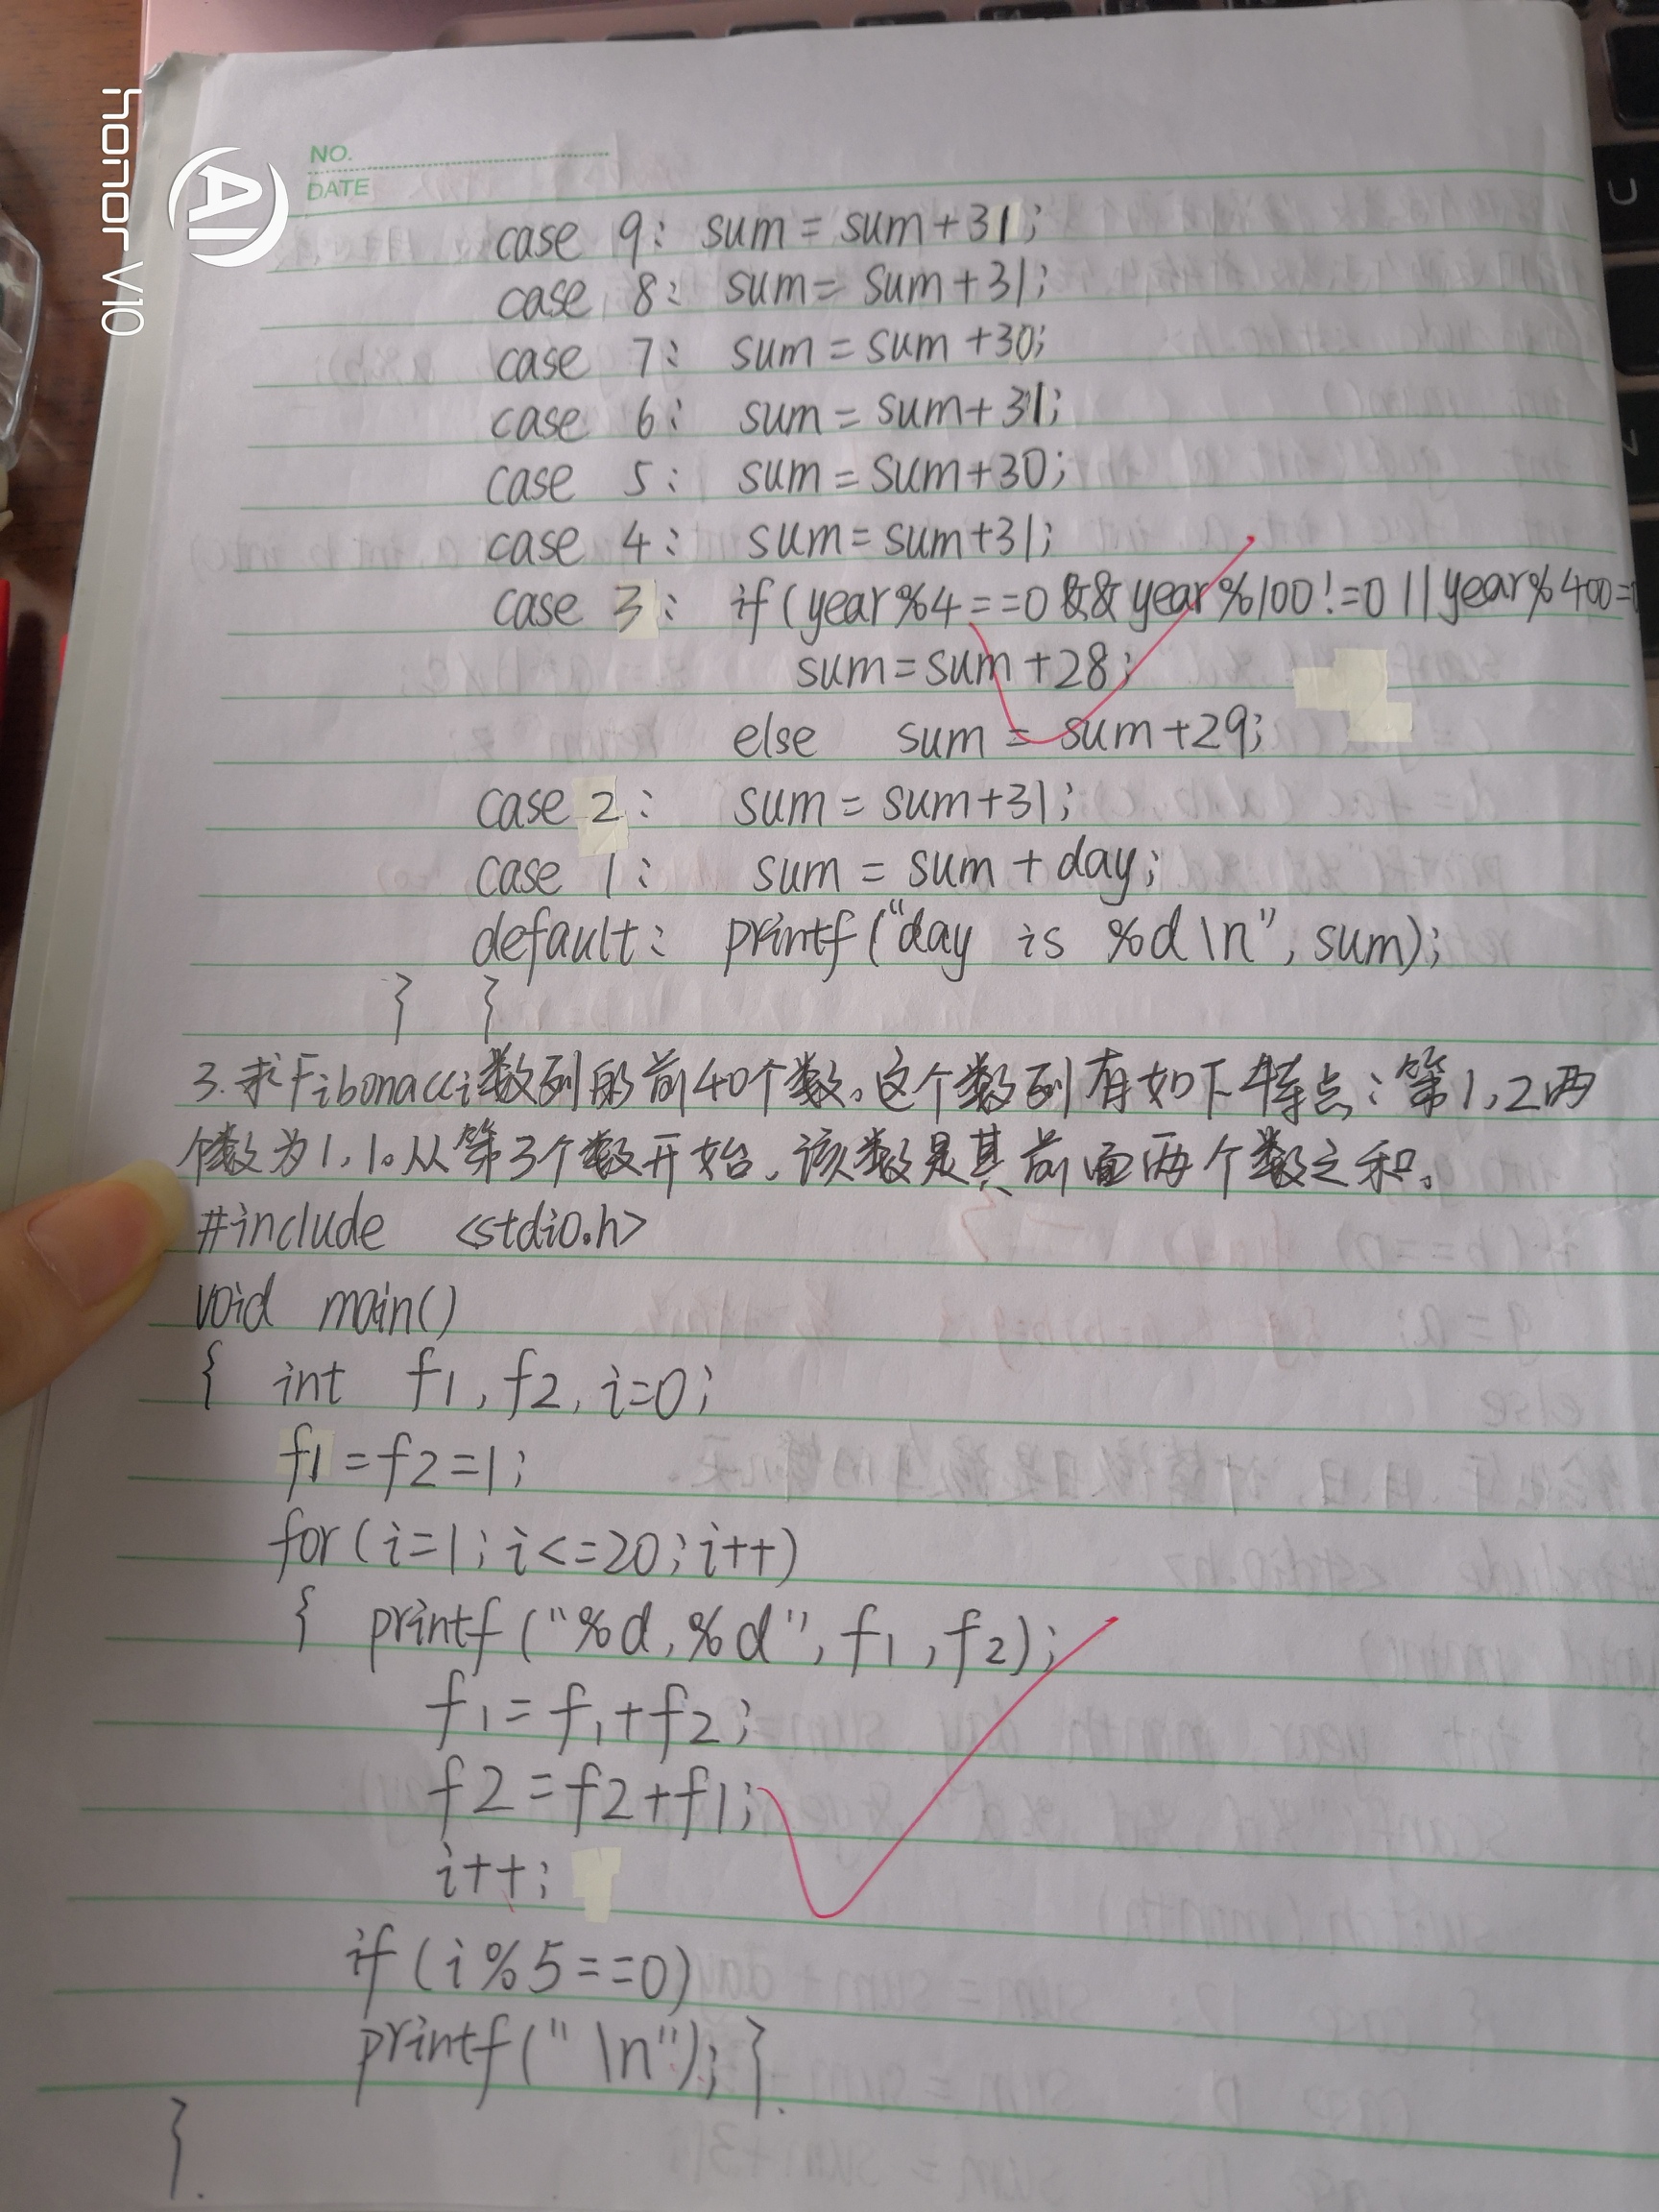 honor V10
AI
NO.
DATE
case 9: sum = sum+31;
case 8: sum= sum+31;
case 7: sum = sum +30;
case 6: sum = sum+31;
case 5: sum = sum+30;
case 4: sum= sum+31;
case 3: if (year%4==0 && year%100!=0 || year%400=
sum=sum+28;
else sum = sum+29;
case 2: sum = sum+31;
case 1: sum = sum + day;
default: printf("day is %d\n", sum);
} }
3.求Fibonacci数列的前40个数。这个数列有如下特点:第1,2两
个数为1,1。从第3个数开始,该数是其前面两个数之和。
#include <stdio.h>
void main()
{ int f1, f2, i=0;
f1=f2=1;
for(i=1; i<=20; i++)
{ printf("%d,%d", f1, f2);
f1=f1+f2;
f2=f2+f1;
i++;
if (i%5==0)
printf("\n"); }
}